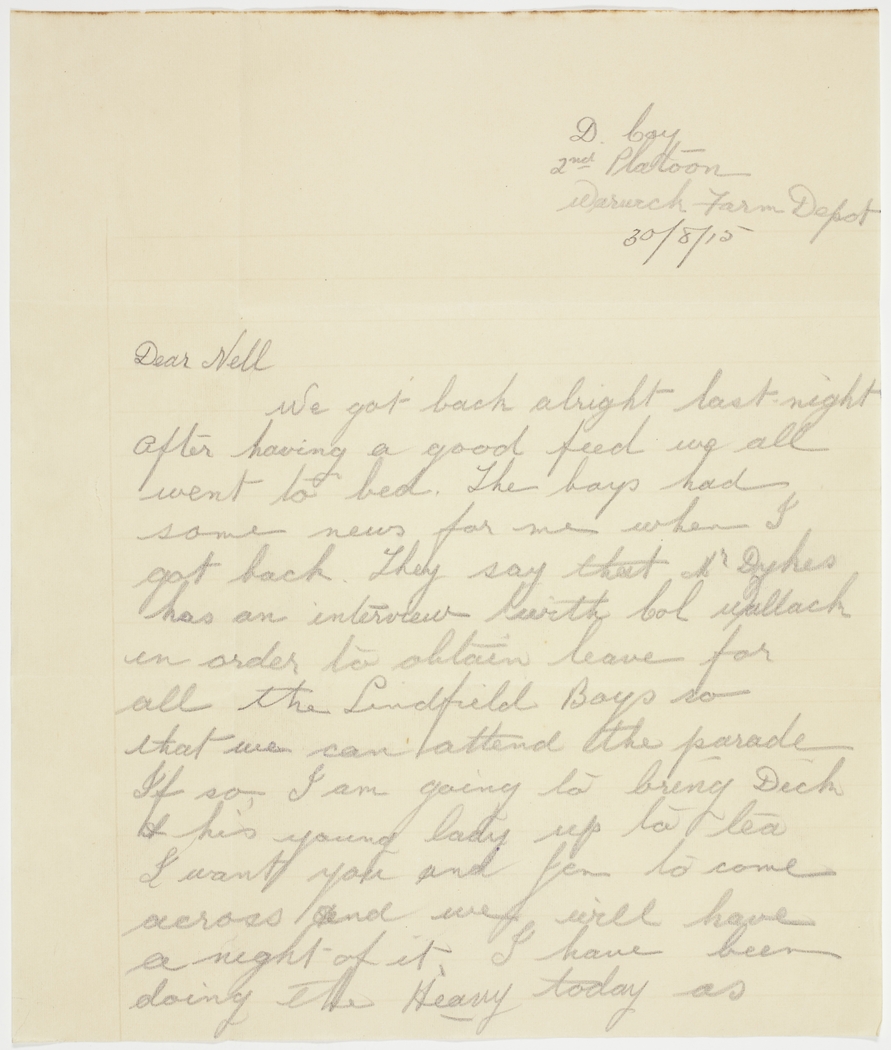 D. Coy
2nd Platoon
Warwick Farm Depot
30/8/15
Dear Nell
We got back alright last night
After having a good feed we all
went to bed. The boys had
some news for me when I
got back. They say that Mr Dykes
has an interview with Col Wallack
in order to obtain leave for
all the Lindfield Boys so
that we can attend the parade
If so, I am going to bring Dick
& his young lady up to tea
I want you and Jen to come
across and we will have
a night of it. I have been
doing the Heavy today as